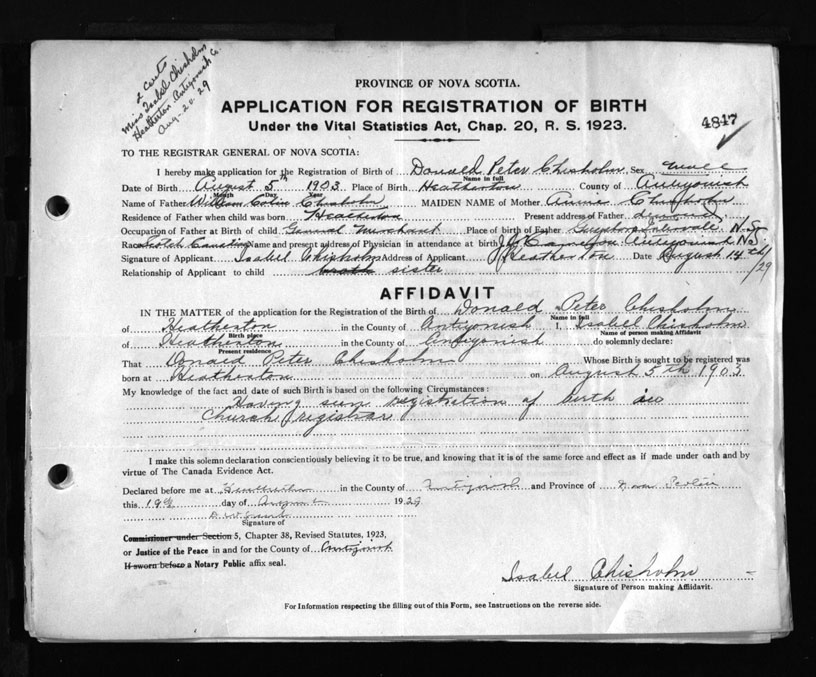 2 Certs
Miss Isabel Chisholm
Heatherton Antigonish Co.
Aug-20-29
PROVINCE OF NOVA SCOTIA.
APPLICATION FOR REGISTRATION OF BIRTH
Under the Vital Statistics Act, Chap. 20, R. S. 1923.
4847
TO THE REGISTRAR GENERAL OF NOVA SCOTIA:
I hereby make application for the Registration of Birth of Donald Peter Chisholm Sex male
Name in full
Date of Birth August 5th 1903 Place of Birth Heatherton County of Antigonish
Month Day Year
Name of Father William Colin Chisholm MAIDEN NAME of Mother Annie Chisholm
Residence of Father when child was born Heatherton Present address of Father deceased
Occupation of Father at Birth of child General Merchant Place of birth of Father N.S.
Race Scotch Canadian Name and present address of Physician in attendance at birth Cameron Antigonish N.S.
Signature of Applicant Isabel Chisholm Address of Applicant Heatherton Date August 14th/29
Relationship of Applicant to child sister
AFFIDAVIT
IN THE MATTER of the application for the Registration of the Birth of Donald Peter Chisholm
Name in full
of Heatherton in the County of Antigonish I, Isabel Chisholm
Birth place Name of person making Affidavit
of Heatherton in the County of Antigonish do solemnly declare:
Present residence
That Donald Peter Chisholm Whose Birth is sought to be registered was
born at Heatherton on August 5th 1903
My knowledge of the fact and date of such Birth is based on the following Circumstances:
Having seen registration of birth in
Church registrar
I make this solemn declaration conscientiously believing it to be true, and knowing that it is of the same force and effect as if made under oath and by
virtue of The Canada Evidence Act.
Declared before me at Heatherton in the County of Antigonish and Province of Nova Scotia
this 19th day of August 1929
Signature of
Commissioner under Section 5, Chapter 38, Revised Statutes, 1923,
or Justice of the Peace in and for the County of Antigonish
If sworn before a Notary Public affix seal.
Isabel Chisholm
Signature of Person making Affidavit.
For Information respecting the filling out of this Form, see Instructions on the reverse side.